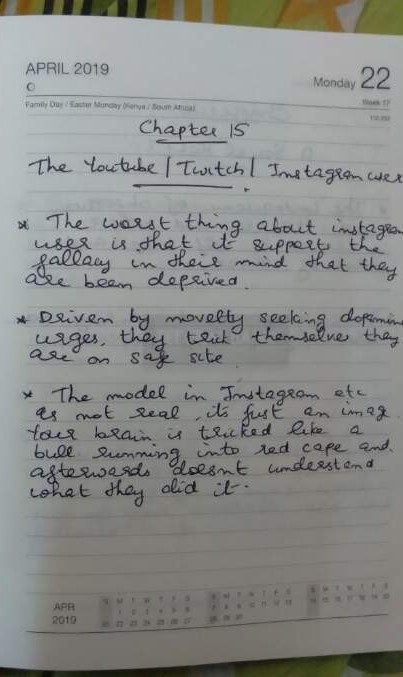 APRIL 2019
Monday 22
Family Day / Easter Monday (Kenya / South Africa)
Week 17
Chapter 15
The Youtube | Twitch | Instagram user
* The worst thing about instagram
user is that it support the
fallacy in their mind that they
are been deprived.
* Driven by novelty seeking dopamine
urges, they trick themselve they
are on safe site
* The model in Instagram etc
is not real, its just an imag
Your brain is tricked like a
bull running into red cape and
afterwards doesnt understand
what they did it.
APR
2019